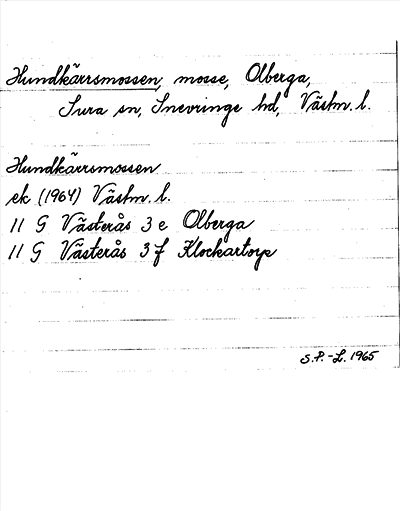 Hundkärrsmossen, mosse, Olberga,
Sura sn, Snevringe hd, Västm. l.
Hundkärrsmossen
ek (1964) Västm. l.
11 G Västerås 3 e Olberga
11 G Västerås 3 f Klockartorp
S.P.-L. 1965